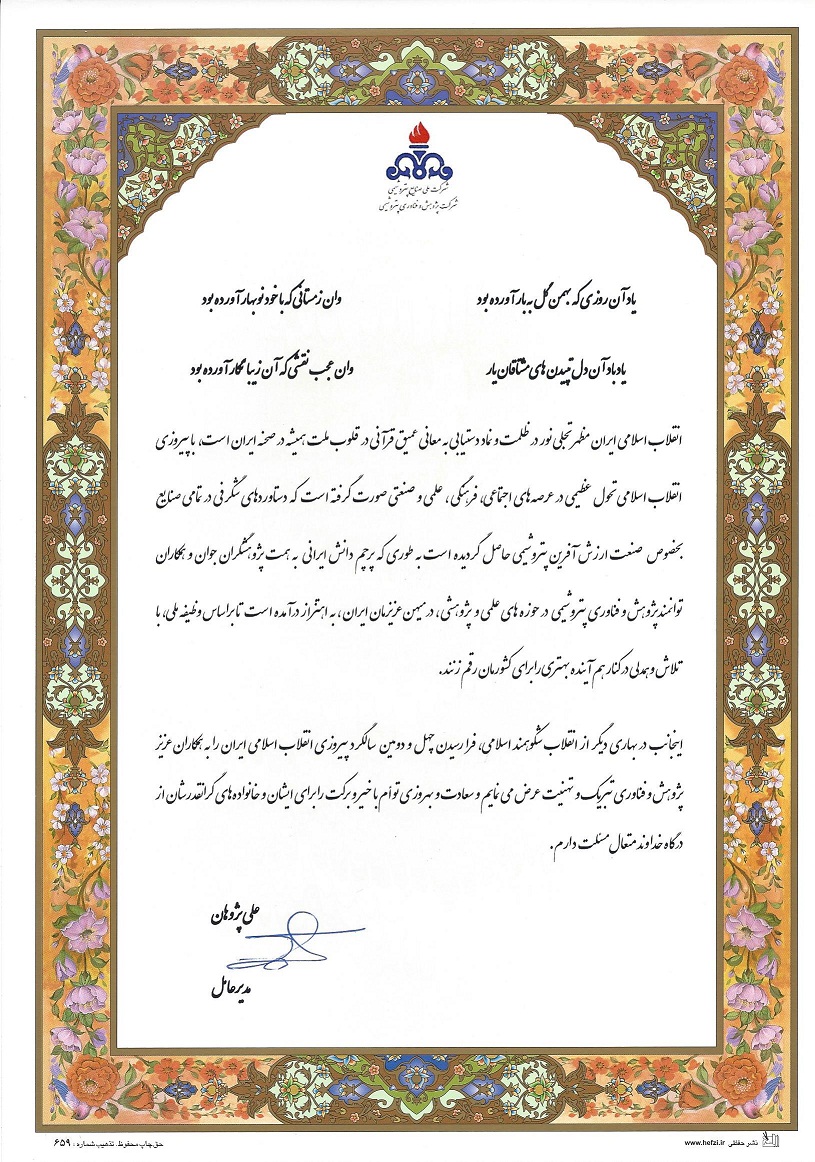 شرکت ملی صنایع پتروشیمی
شرکت پژوهش و فناوری پتروشیمی
یاد آن روزی که بهمن گل به بار آورده بود وان زمستانی که با خود نوبهار آورده بود
یاد باد آن دل تپیدن های مشتاقان یار وان عجب نقشی که آن زیبا نگار آورده بود
انقلاب اسلامی ایران مظهر تجلی نور در ظلمت و نماد دستیابی به معانی عمیق قرآنی در قلوب ملت همیشه در صحنه ایران است، با پیروزی
انقلاب اسلامی تحول عظیمی در عرصه های اجتماعی، فرهنگی، علمی و صنعتی صورت گرفته است که دستاوردهای شگرفی در تمامی صنایع
بخصوص صنعت ارزش آفرین پتروشیمی حاصل گردیده است به طوری که پرچم دانش ایرانی به همت پژوهشگران جوان و همکاران
توانمند پژوهش و فناوری پتروشیمی در حوزه های علمی و پژوهشی، در میهن عزیزمان ایران، به اهتزاز درآمده است تا براساس وظیفه ملی، با
تلاش و همدلی در کنار هم آینده بهتری را برای کشورمان رقم زنند.
اینجانب در بهاری دیگر از انقلاب شکوهمند اسلامی، فرا رسیدن چهل و دومین سالگرد پیروزی انقلاب اسلامی ایران را به همکاران عزیز
پژوهش و فناوری تبریک و تهنیت عرض می نمایم و سعادت و بهروزی توأم با خیر و برکت را برای ایشان و خانواده های گرانقدرشان از
درگاه خداوند متعال مسئلت دارم.
علی پژوهان
مدیرعامل
نشر حفظی www.hefzi.ir حق چاپ محفوظ. تذهیب شماره: ۶۵۹